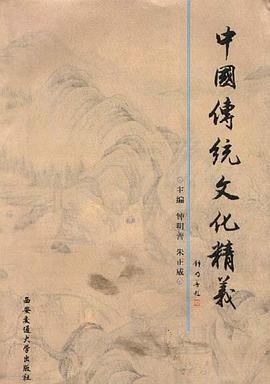 中國傳統文化精義
鍾明善題
主编 钟明善 朱正威
西安交通大学出版社